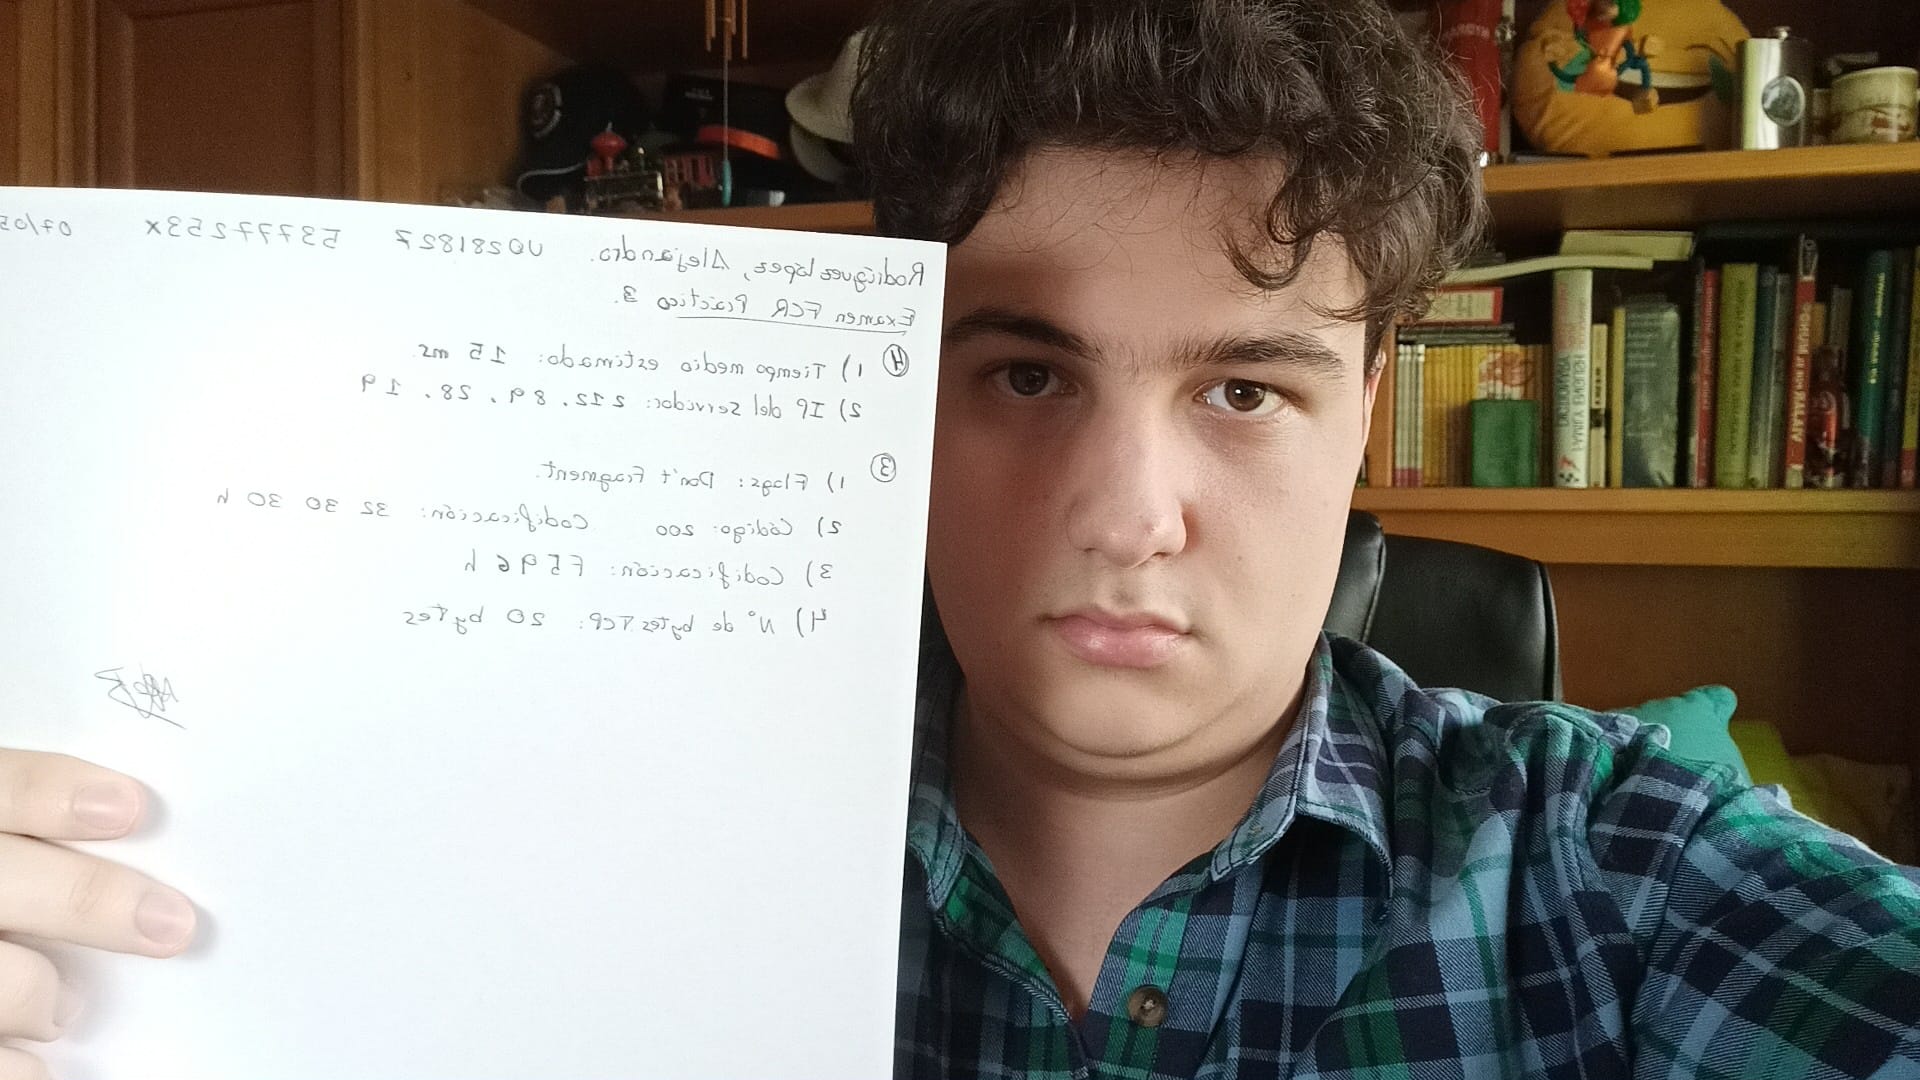 Rodríguez López, Alejandro. UO281827 53777253X 07/05
Examen FCR Práctico 3.
④ 1) Tiempo medio estimado: 15 ms.
2) IP del servidor: 212.89.28.19
③ 1) Flags: Don't Fragment.
2) Código: 200 Codificación: 32 30 30 h
3) Codificación: F596 h
4) Nº de bytes TCP: 20 bytes